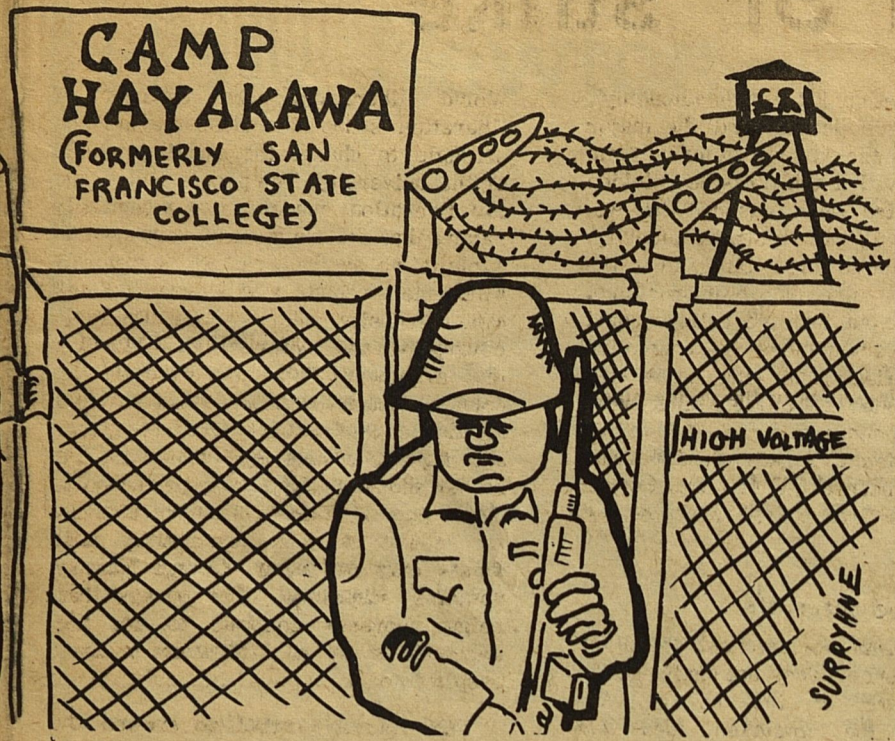 CAMP
HAYAKAWA
(FORMERLY SAN
FRANCISCO STATE
COLLEGE)
HIGH VOLTAGE
SURRYHNE